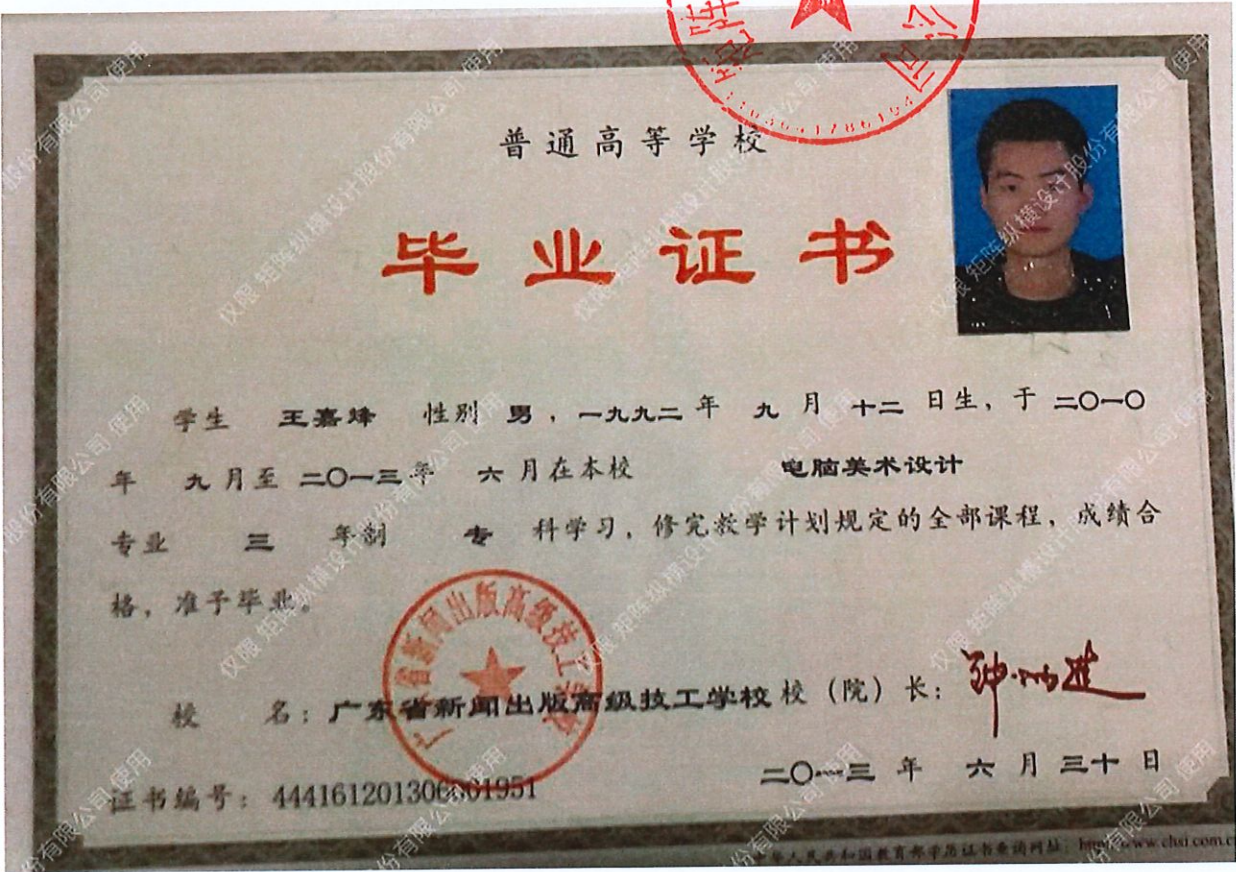 普通高等学校
毕业证书
学生 王嘉烽 性别 男，一九九二年 九 月 十二 日生，于 二〇一〇
年 九 月至 二〇一三年 六 月在本校 电脑美术设计
专业 三 年制 专 科学习，修完教学计划规定的全部课程，成绩合
格，准予毕业。
广东省新闻出版高级技工学校
校 名：广东省新闻出版高级技工学校 校（院）长：
二〇一三 年 六 月 三十 日
证书编号：444161201306001951
中华人民共和国教育部学历证书查询网址：http://www.chsi.com.c
仅限 矩阵纵横设计股份有限公司 使用